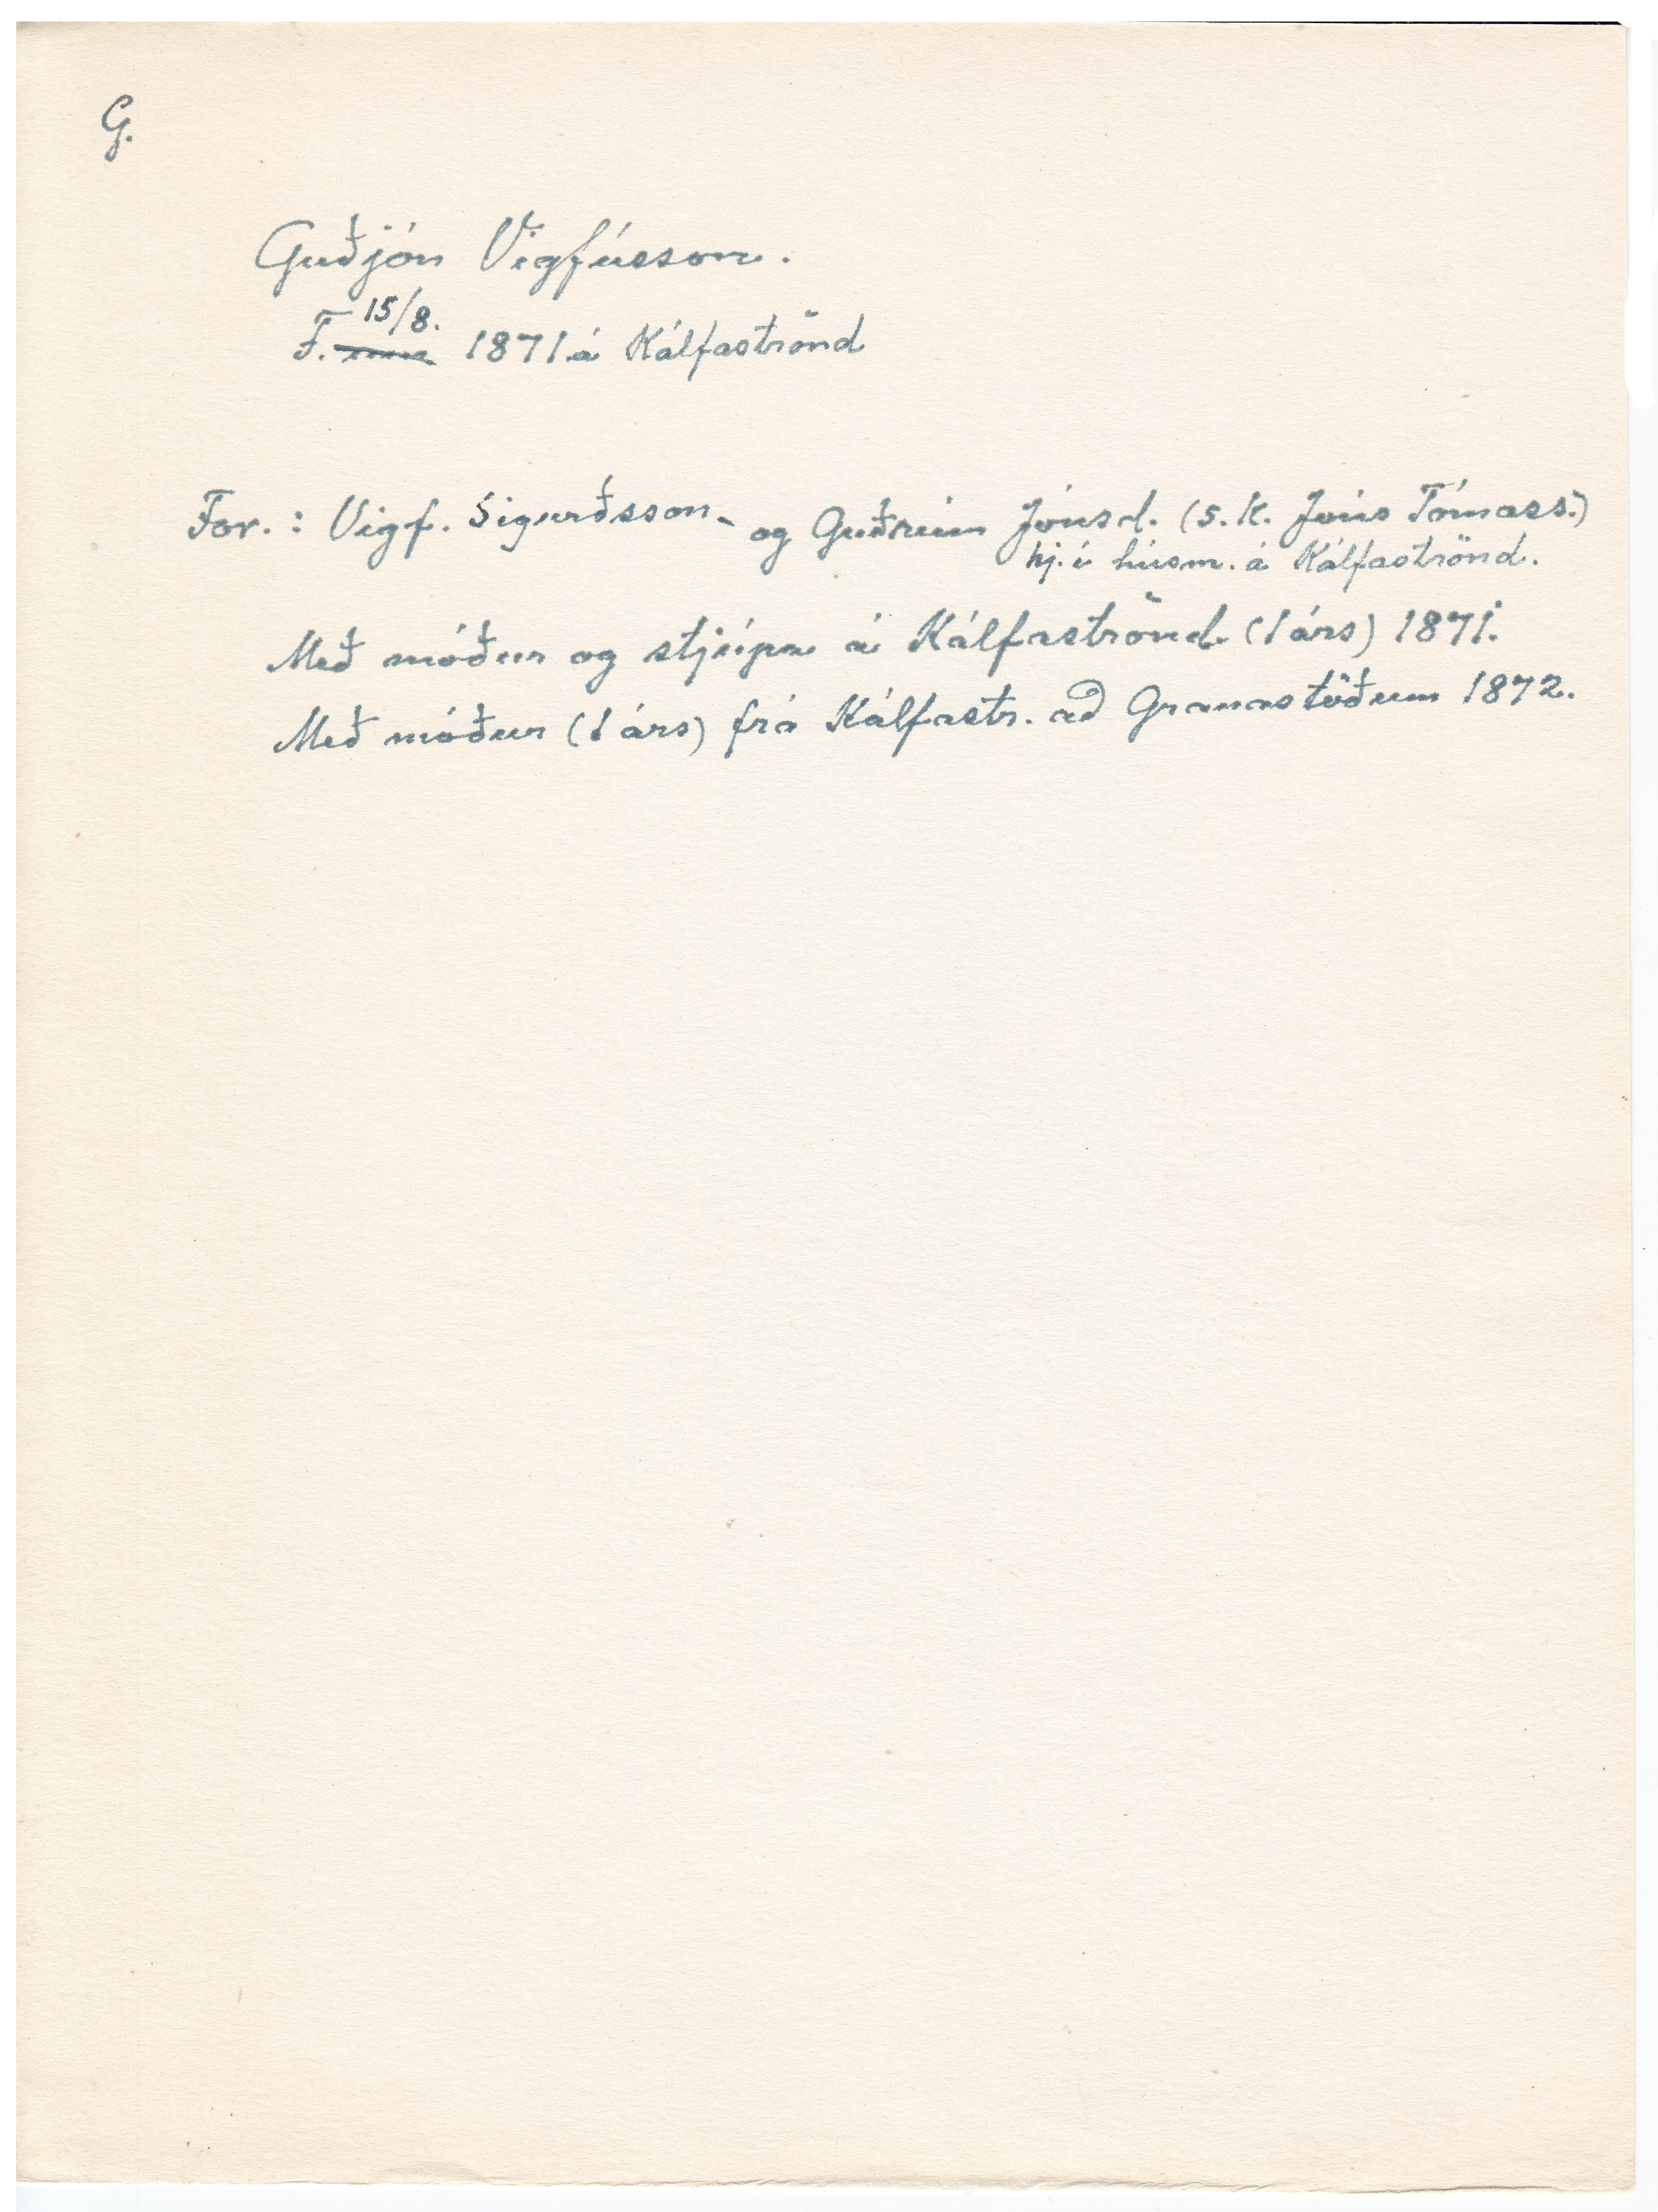 G.
Guðjón Vigfússon.
F. 15/8. 1871 á Kálfaströnd
For.: Vigf. Sigurðsson og Guðrún Jónsd. (s.k. Jóns Tómass.)
hj. í húsm. á Kálfaströnd.
Með móður og stjúpa á Kálfaströnd (1 árs) 1871.
Með móður (1 árs) frá Kálfastr. að Granastöðum 1872.